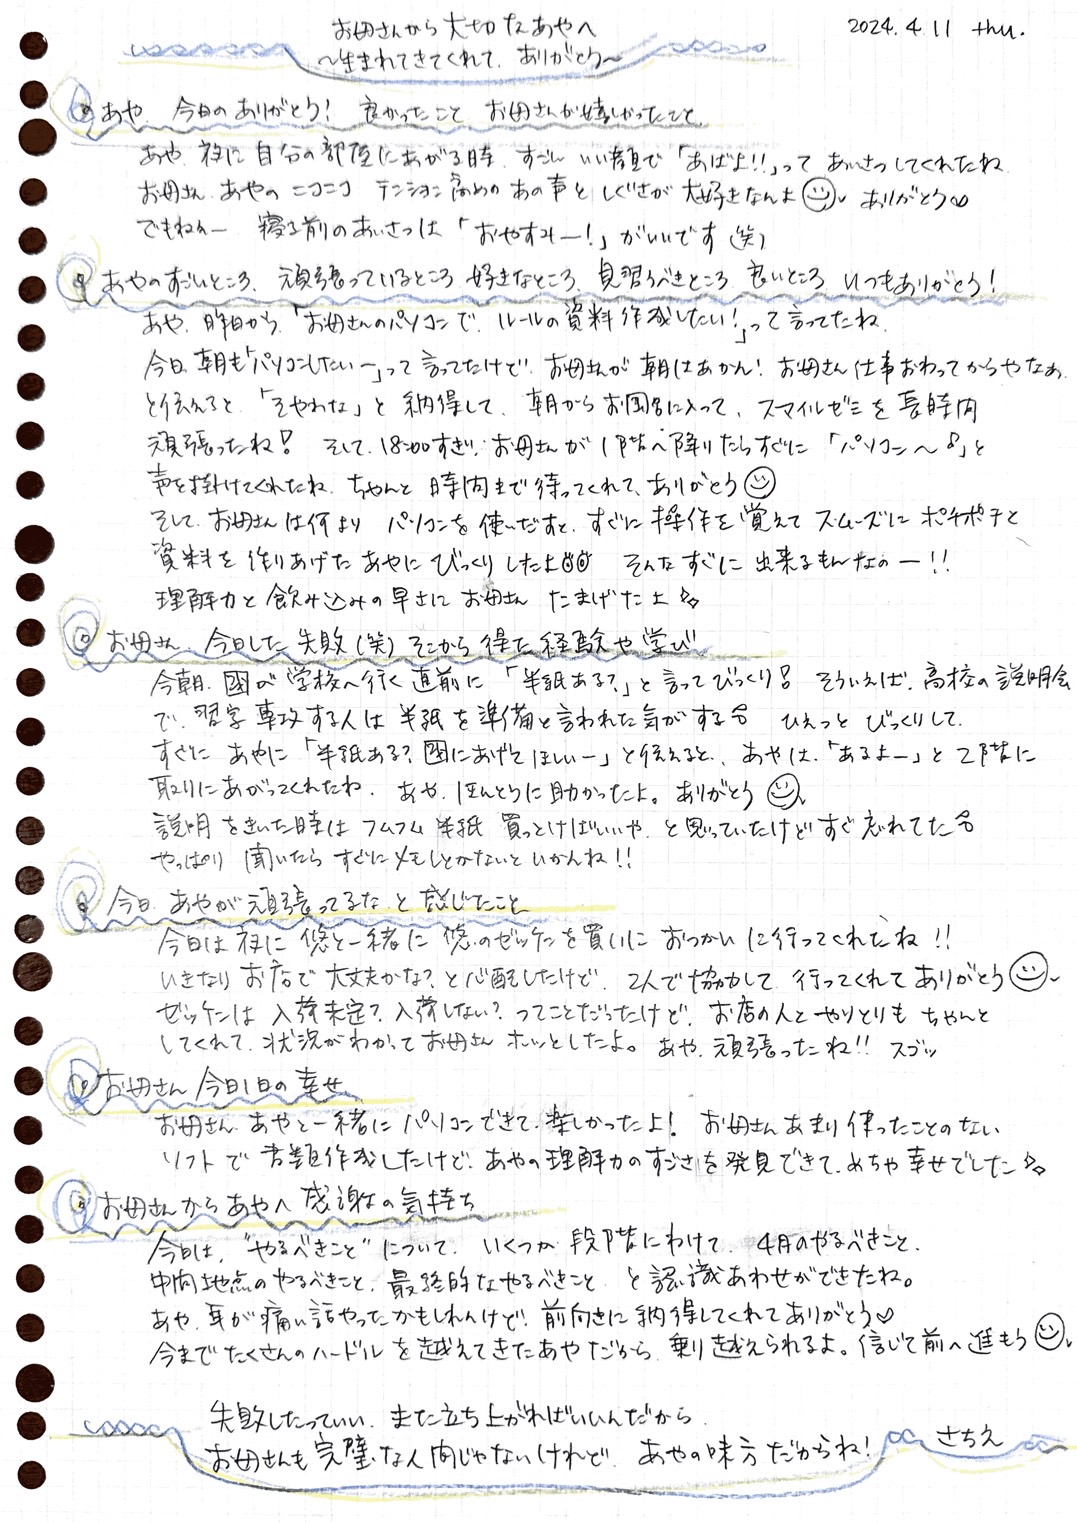 お母さんから大切なあやへ
2024.4.11 thu.
〜生まれてきてくれて、ありがとう〜
あや、今日のありがとう! 良かったこと お母さんが嬉しかったこと
あや、夜に自分の部屋にあがる時、すごい いい顔で「あばよ!!」って あいさつしてくれたね
お母さん、あやのニコニコ テンション高めの あの声と しぐさが 大好きなんよ☺ ありがとう♡
でもねぇー 寝る前のあいさつは「おやすみー!」がいいです(笑)
あやのすごいところ、頑張っているところ 好きなところ、見習うべきところ 良いところ、いつもありがとう!
あや、昨日から、「お母さんのパソコンで、ルールの資料作成したい!」って言ってたね
今日、朝も「パソコンしたいー」って言ってたけど、お母さんが朝はあかん! お母さん仕事おわってからやなぁ
と伝えると、「そやわな」と納得して、朝からお風呂に入って、スマイルゼミを長時間
頑張ったね! そして、18:00すぎ、お母さんが1階へ降りたらすぐに「パソコン〜!」と
声を掛けてくれたね、ちゃんと時間まで待ってくれて、ありがとう☺
そして、お母さんは何より パソコンを使いだすと、すぐに操作を覚えてスムーズにポチポチと
資料を作りあげたあやにびっくりしたよ そんなすぐに出来るもんなのー!!
理解力と飲み込みの早さにお母さん たまげたよ
お母さん、今日した失敗(笑)そこから得た経験や学び
今朝、圏が学校へ行く直前に「半紙ある?」と言ってびっくり! そういえば、高校の説明会
で、習字専攻する人は半紙を準備と言われた気がする ひぇっとびっくりして、
すぐにあやに「半紙ある? 圏にあげてほしいー」と伝えると、あやは、「あるよー」と2階に
取りにあがってくれたね、あや、ほんとうに助かったよ。ありがとう☺
説明をきいた時はフムフム半紙買っとけばいいや、と思っていたけどすぐ忘れてた
やっぱり聞いたらすぐにメモしとかないといかんね!!
今日、あやが頑張ってるな と感じたこと
今日は夜に悠と一緒に悠のゼッケンを買いにおつかいに行ってくれたね!!
いきなりお店で大丈夫かな?と心配したけど、2人で協力して行ってくれてありがとう☺
ゼッケンは入荷未定? 入荷しない? ってことだったけど、お店の人とやりとりもちゃんと
してくれて、状況がわかってお母さんホッとしたよ。あや、頑張ったね!! スゴッ
お母さん 今日1日の幸せ
お母さん、あやと一緒にパソコンできて、楽しかったよ! お母さんあまり使ったことのない
ソフトで書類作成したけど、あやの理解力のすごさを発見できて、めちゃ幸せでした
お母さんからあやへ感謝の気持ち
今日は、"やるべきこと"について、いくつか段階にわけて、4月のやるべきこと、
中間地点のやるべきこと、最終的なやるべきこと、と認識あわせができたね。
あや、耳が痛い話やったかもしれんけど、前向きに納得してくれてありがとう♡
今までたくさんのハードルを越えてきたあやだから、乗り越えられるよ。信じて前へ進もう☺
失敗したっていい、また立ち上がればいいんだから、
お母さんも完璧な人間じゃないけれど、あやの味方だからね!
さちえ